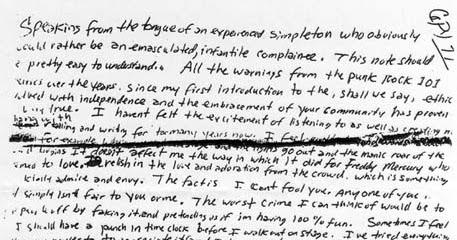 Speaking from the tongue of an experienced simpleton who obviously
would rather be an emasculated, infantile complainee. This note should
pretty easy to understand. All the warnings from the punk rock 101
over the years. since my first introduction to the, shall we say, ethic
with independence and the embracement of your community has proven
true. I havent felt the excitement of listening to as well as
and writing for too many years now. I feel
For example
out and the manic roar of the
doesnt affect me the way in which it did for Freddy Mercury who
to love, relish in the love and adoration from the crowd. which is something
admire and envy. The fact is I cant fool you. Any one of you.
simply isnt fair to you or me. The worst crime I can think of would be to
off by faking it and pretending as if im having 100% fun. Sometimes I feel
should have a punch in time clock before I walk out on stage. I've tried everything